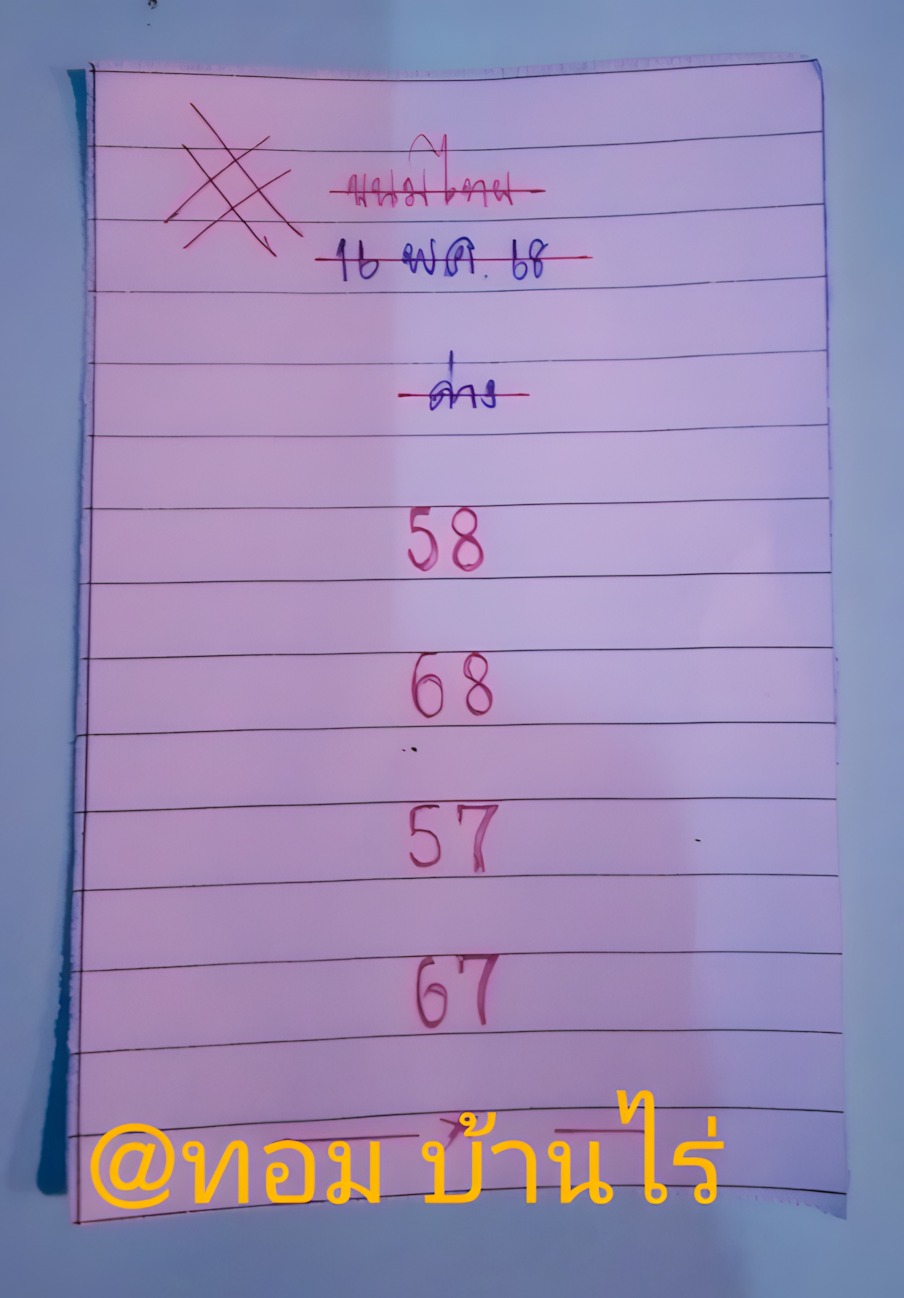 ขนมไทย
16 พ.ศ. 68
ล่าง
58
68
57
67
@ทอม บ้านไร่